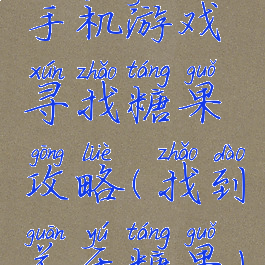 手机游戏
xún zhǎo táng guǒ
寻找糖果
gōng lüè zhǎo dào
攻略(找到
guān yú táng guǒ
关于糖果)